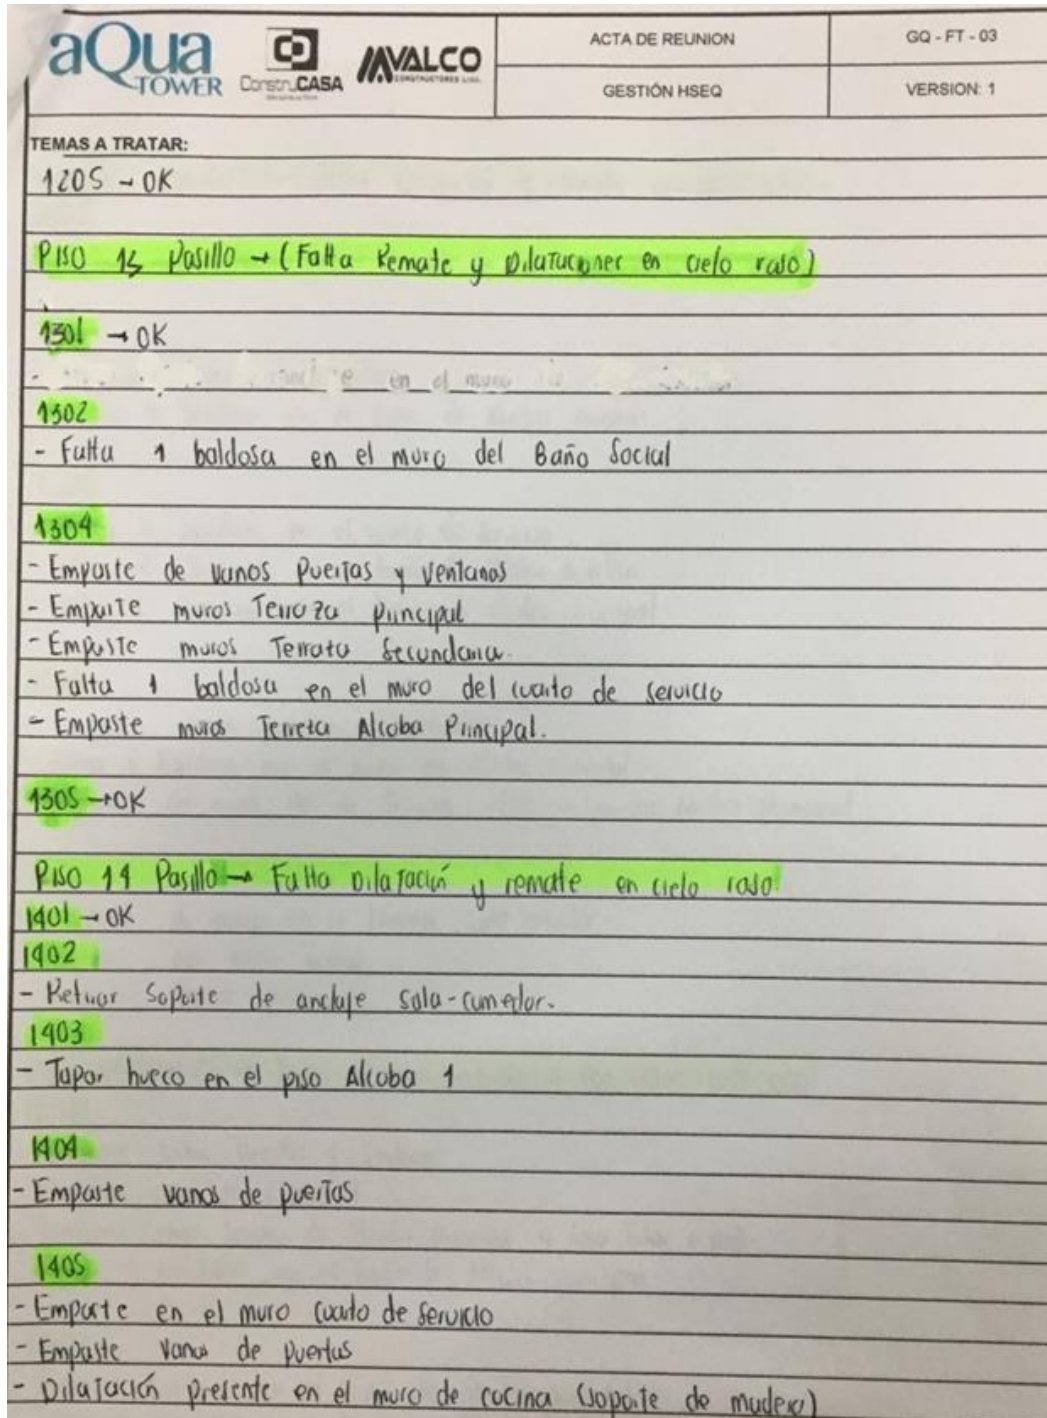 aQua TOWER
ConstruCASA
MVALCO
CONSTRUCTORES LTDA.
ACTA DE REUNION
GQ - FT - 03
GESTIÓN HSEQ
VERSION: 1
TEMAS A TRATAR:
1205 → OK
PISO 13 Pasillo → (Falta Remate y Dilataciones en cielo raso)
1301 → OK
- en el muro
1302
- Falta 1 baldosa en el muro del Baño Social
1304
- Empaste de vanos Puertas y Ventanas
- Empaste muros Terraza Principal
- Empaste muros Terraza Secundaria.
- Falta 1 baldosa en el muro del cuarto de servicio
- Empaste muros Terraza Alcoba Principal.
1305 → OK
PISO 14 Pasillo → Falta Dilatación y remate en cielo raso.
1401 → OK
1402
- Retirar Soporte de anclaje sala-comedor.
1403
- Tapar hueco en el piso Alcoba 1
1404
- Empaste vanos de puertas
1405
- Empaste en el muro cuarto de servicio
- Empaste Vanos de Puertas
- Dilatación presente en el muro de cocina (soporte de madera)